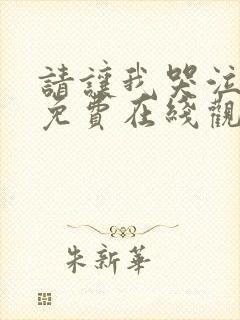 請讓我哭泣
免費在綫觀
朱新華